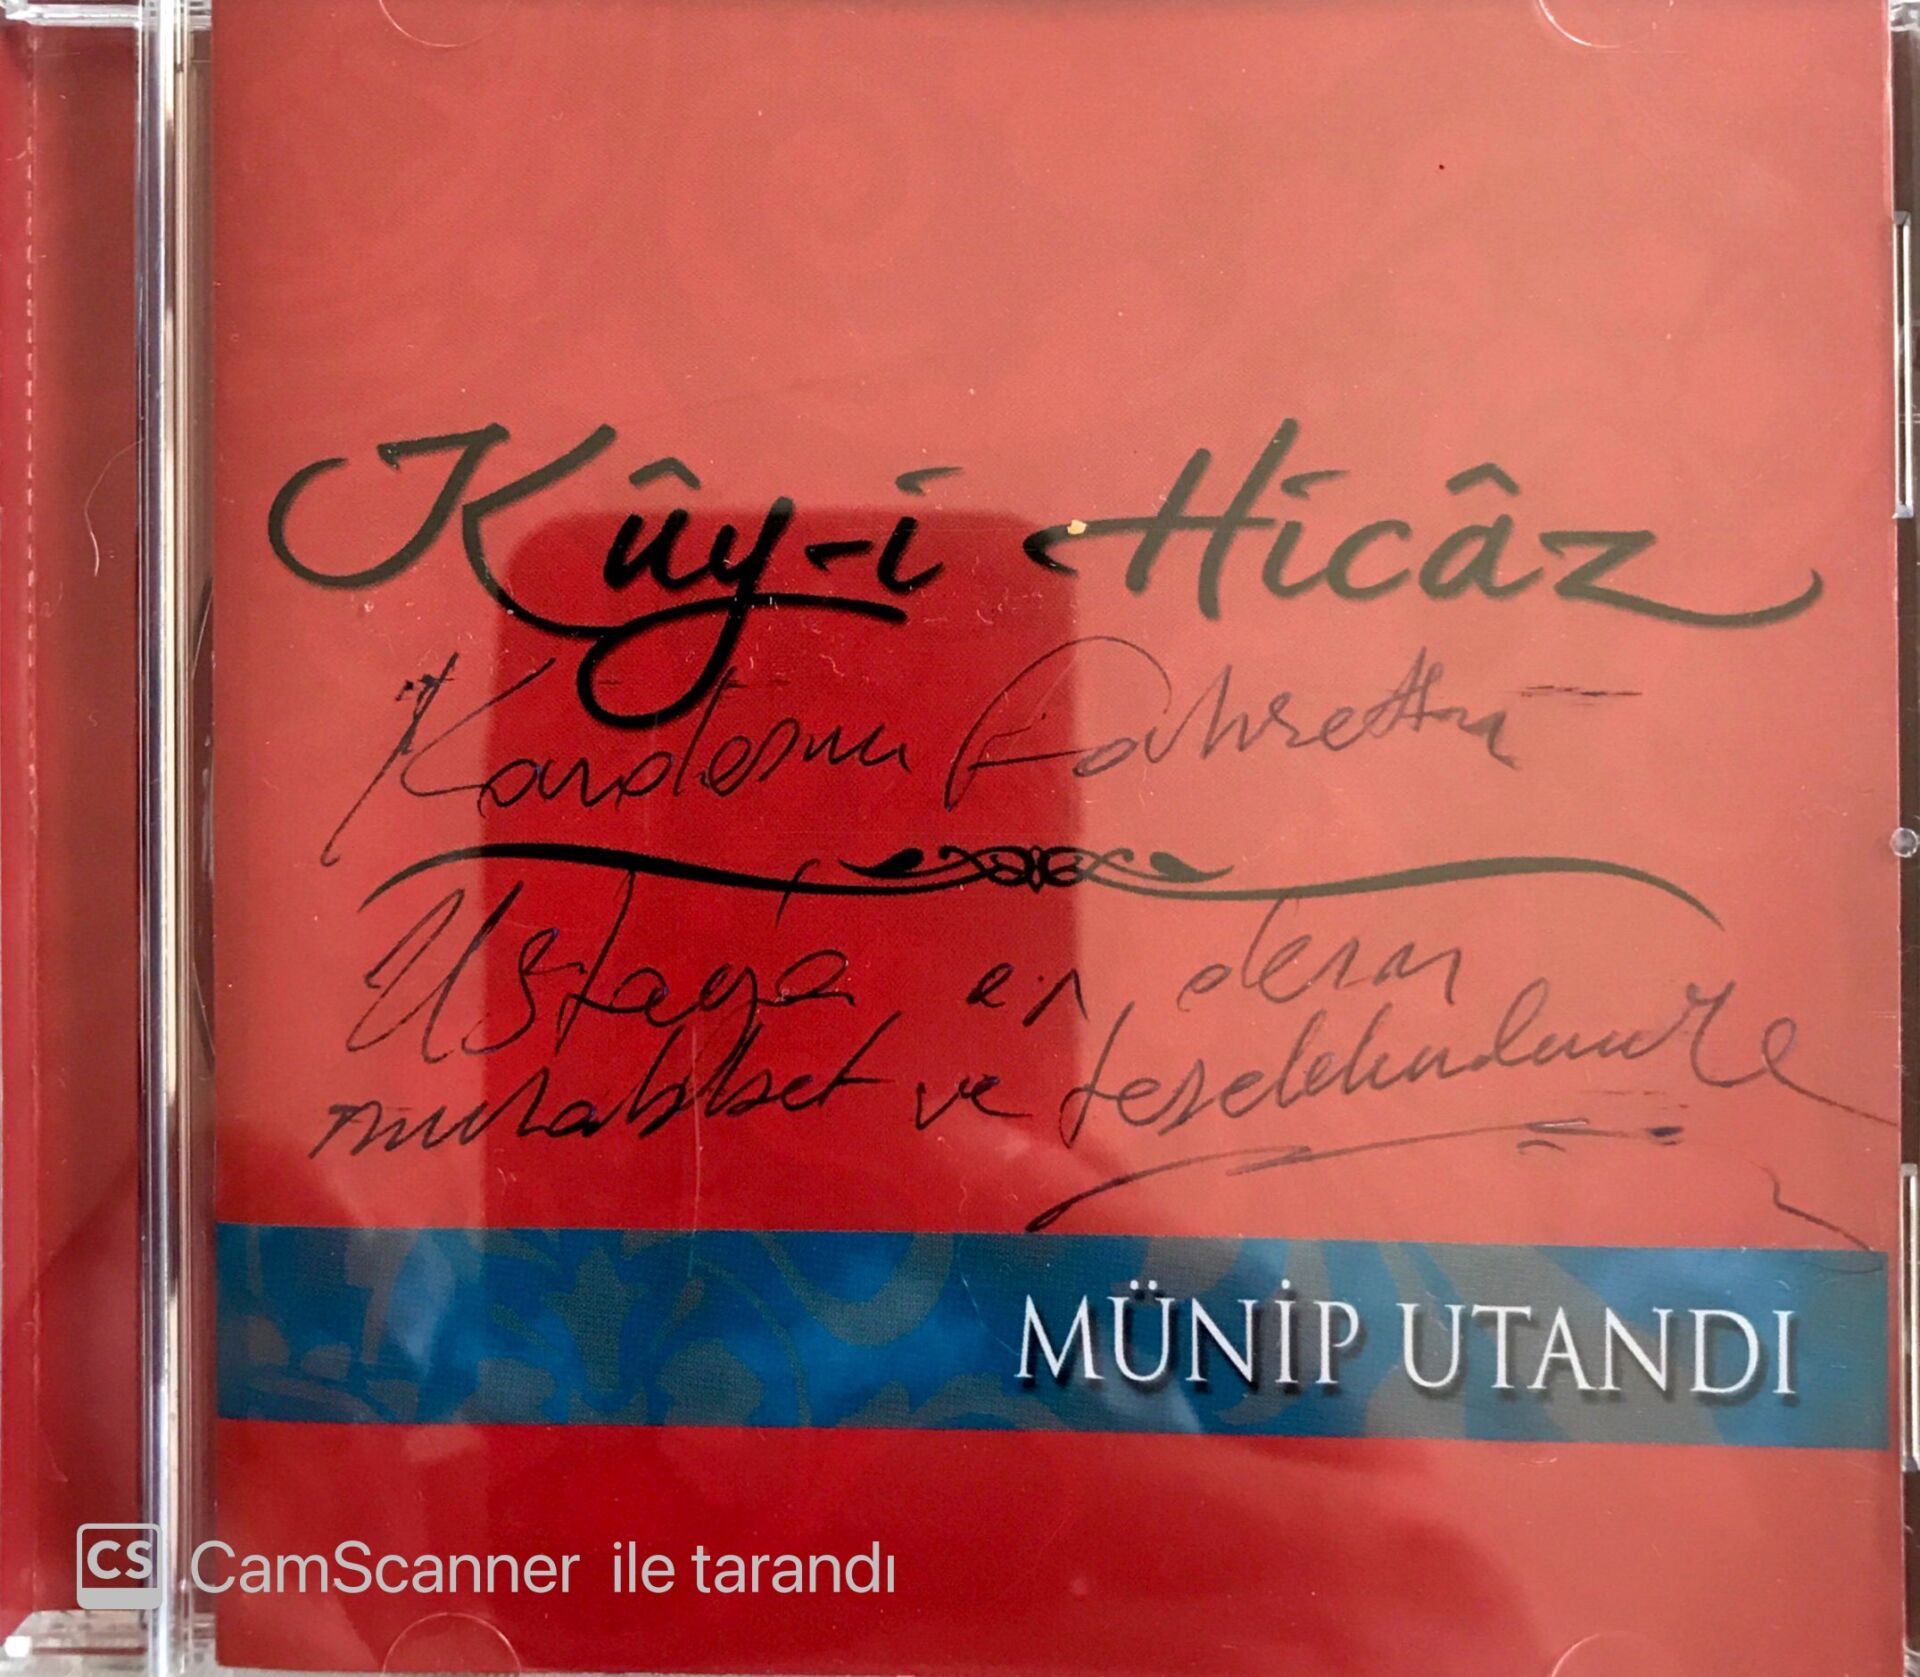 Kûy-i Hicâz
Kardeşim Fahrettin
Ustaya en derin
muhabbet ve teşekkürlerimle
MÜNİP UTANDI
CS CamScanner ile tarandı